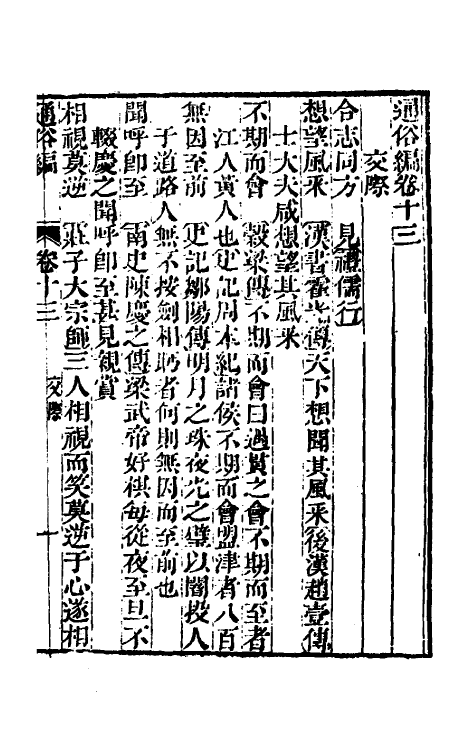 通俗編卷十三
交際
合志同方　見禮儒行
想望風采　漢書霍光傳天下想聞其風采後漢趙壹傳
士大夫咸想望其風采
不期而會　穀梁傳不期而會曰遇賢之會不期而至者
江人黃人也史記周本紀諸侯不期而會盟津者八百
無因至前　史記鄒陽傳明月之珠夜光之璧以闇投人
于道路人無不按劍相眄者何則無因而至前也
聞呼卽至　南史陳慶之傳梁武帝好棋每從夜至旦不
輟慶之聞呼卽至甚見親賞
相視莫逆　莊子大宗師三人相視而笑莫逆于心遂相
通俗編　卷十三　交際　一